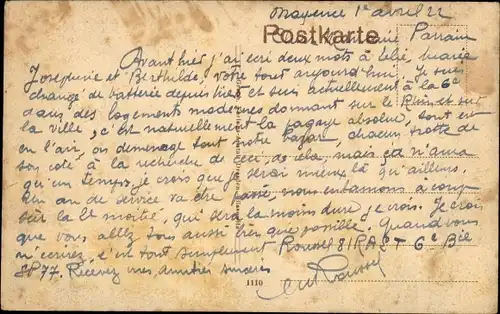 Mayence 1er avril 22
Postkarte
Parrain
Avant hier j'ai écri deux mots à bébé, Marie
Josephine et Berthilde, votre tour aujourd'hui. Je suis
changé de batterie depuis hier et suis actuellement à la 6e
dans des logements modernes donnant sur le Rhin et sur
la ville, c'est naturellement la pagaye absolue, tout est
en l'air, on demenage tout notre bazar, chacun trotte de
son coté à la recherche de ceci, de cela, mais ça n'aura
qu'un temps, je crois que je serai mieux là qu'ailleurs.
Un an de service va être passé, nous entamons à coup
sur la 2e moitié, qui sera la moins dure je crois. Je crois
que vous allez tous aussi bien que possible. Quand vous
m'écrirez, c'est tout simplement Roussel 81 RAC T 6e Bie
SP 77. Recevez mes amitiés sincères
Roussel
1110